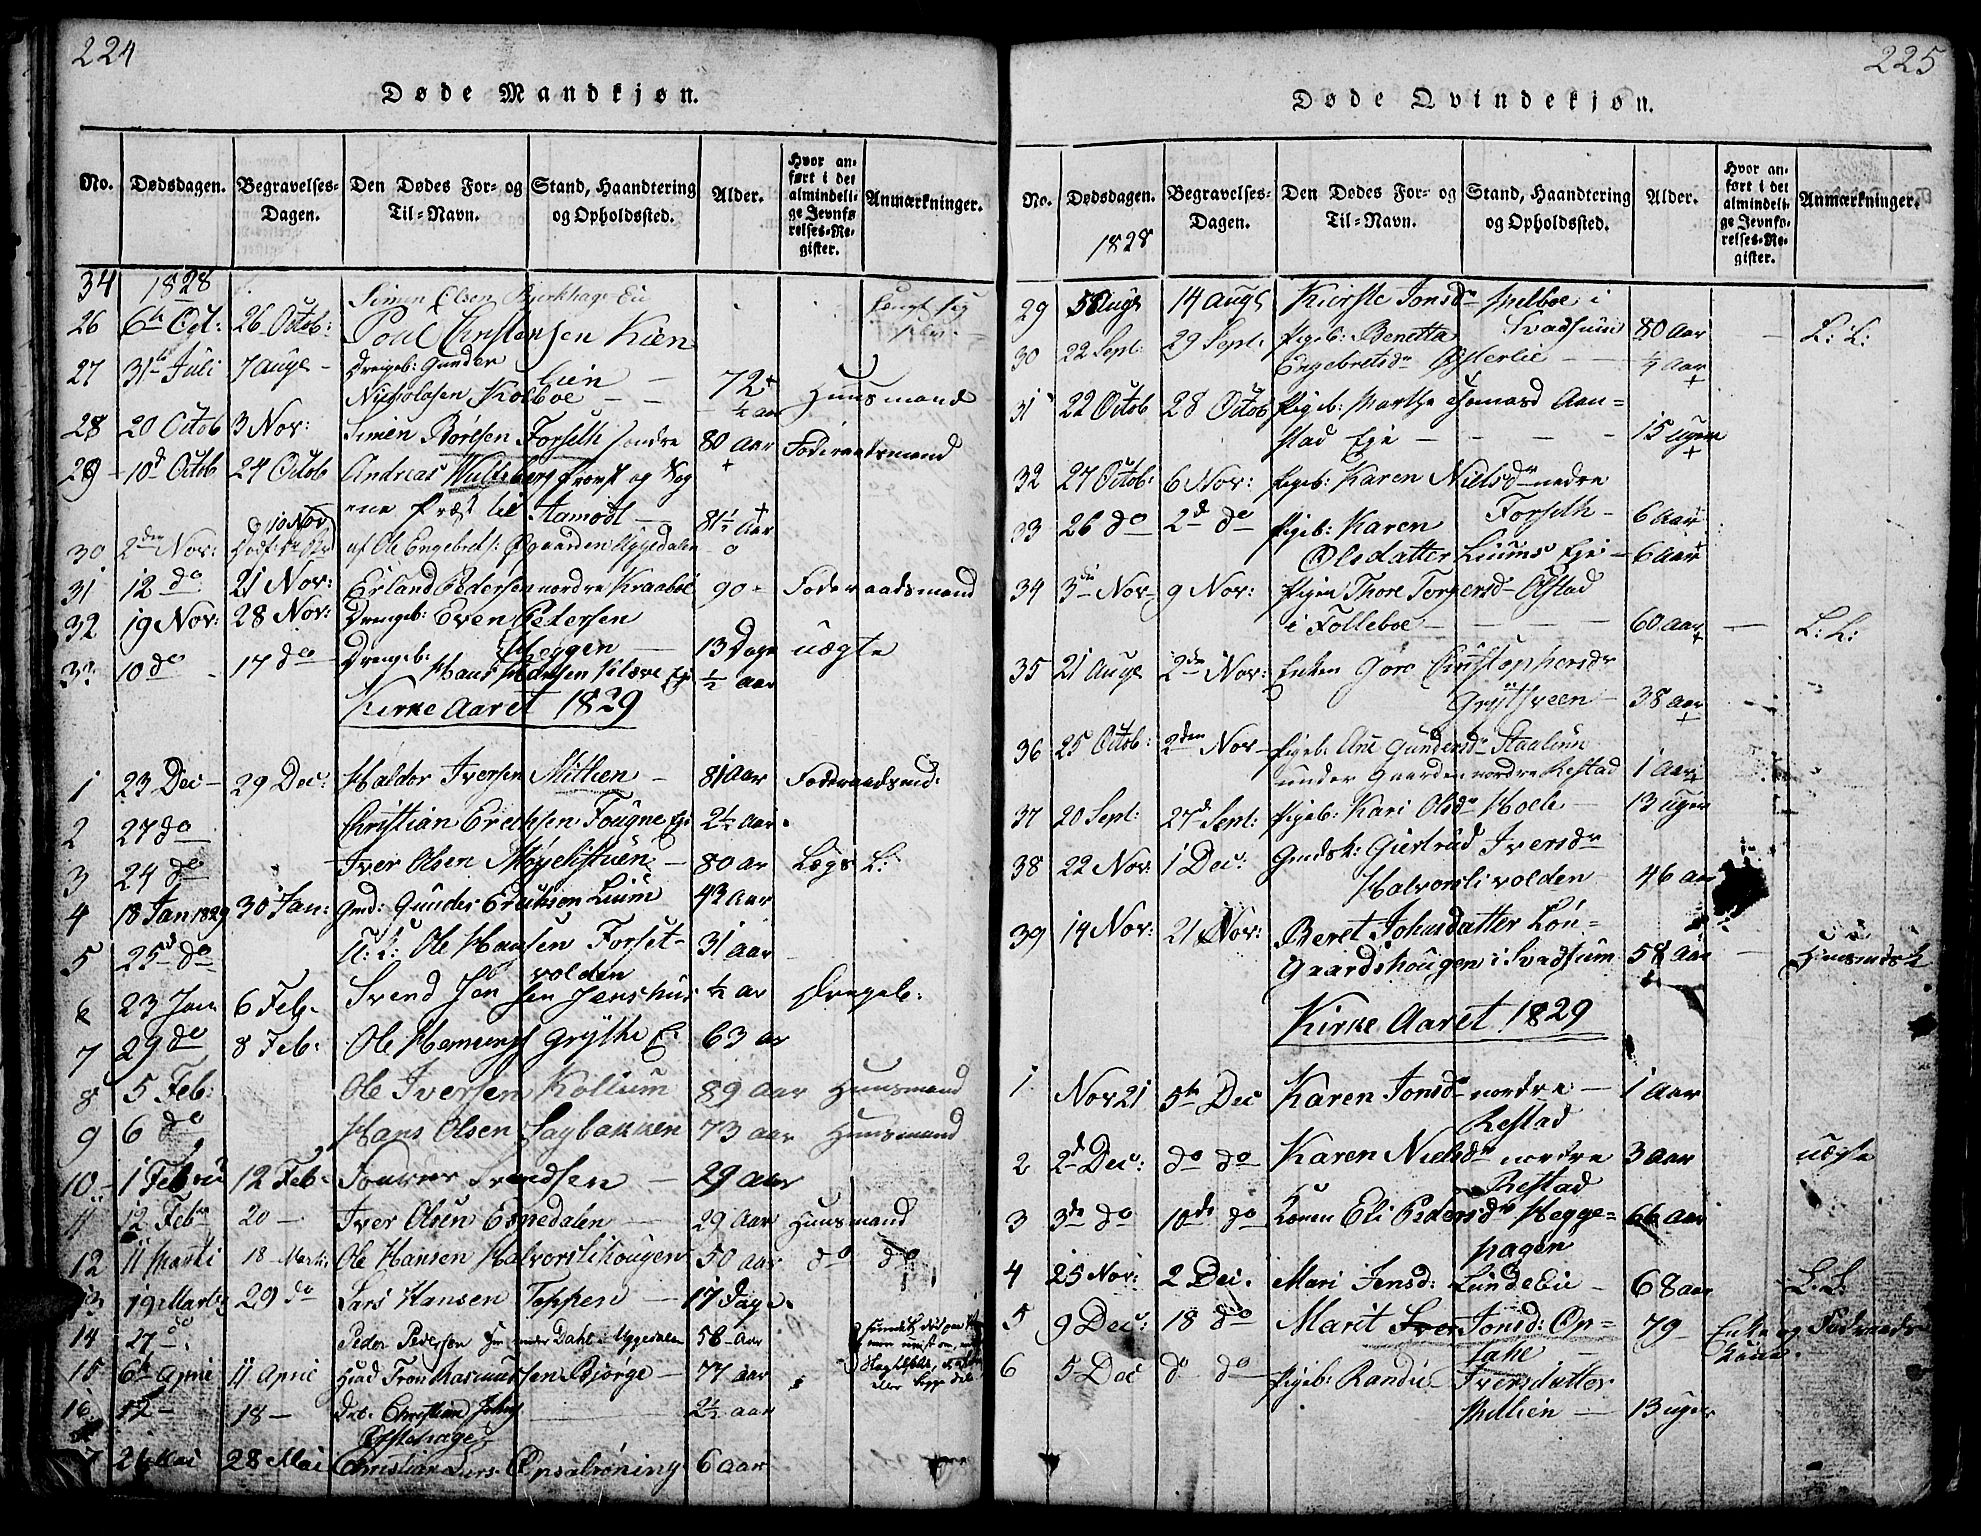 224
Døde Mandkjøn.
No. Dødsdagen. Begravelses-Dagen. Den Dødes For- og Til-Navn. Stand, Haandtering og Opholdssted. Alder. Hvor anført i det almindelige Jevnførelses-Register. Anmærkninger.
34 1828 Simen Olsen Bjerkhage Eie
26 6te Oct: 26 Octob: Poul Christensen Kien
27 31te Juli 7 Augs Drengeb: Gunder lien 72
Nicholasen Kolboe ½ aar Huusmand
28 20 Octob 3 Nov: Simen Boresen Forseth søndre 80 Aar Føderaadsmand
29 10d Octob 24 Octob Andreas Wulfsberg Provst og Sog
ne Præst til Aamodt 81½ Aar
30 2den Nov: 10 Nov af Ole Engebrets: Øgaarden Aggedalen 0
31 12 do 21 Nov: Erland Pedersen nordre Kraaboe 90 Føderaadsmand
32 19 Nov: 28 Nov: Drengeb: Even Petersen
Heggen 13 Dage uægte
33 10 do 17 do Drengeb: Hans Hansen Klæve Ej ½ aar
Kirke Aaret 1829
1 23 Dec 29 Dec: Haldor Iversen Mittien 81 Aar Føderaadsmd:
2 27 do Christian Erichsen Fougne Eje 2½ Aar
3 24 do Iver Olsen Møyelistuen 80 ar Lægs L:
4 18 Jan 1829 30 Jan: Gmd: Gunder Erikson Liium 43 Aar
5 25d do U: K: Ole Hansen Forset-
volden 31 aar
6 23 Jan 6 Feb. Svend Jonsen Jenshus ½ ar Drengeb:
7 29 do 8 Feb. Ole Hemings Grythe E: 63 ar
8 5 Feb: Ole Iversen Kollium 89 aar Huusmand
9 6 do Hans Olsen Sagbakken 73 aar Huusmand
10 1 Februi 12 Feb. Svendsen 29 aar
11 12 Febr 20 Iver Olsen Espedalen 29 Aar Huusmand
12 11 Marti 18 Marti Ole Hansen Halvorslihougen 50 aar do do
13 19 Marti 29 do Lars Hansen Toppen 17 Dage
14 27 do Peder Pedersen under Dahl i Aggedalen 58 Aar
15 6te April 11 April Rasmussen Bjørge 77 aar
16 12 18 Christian Johns 2½ aar
17 21 Mai 28 Mai Christian Lars. Opsalrøning 6 aar
225
Døde Qvindekjøn.
No. Dødsdagen. Begravelses-Dagen. Den Dødes For- og Til-Navn. Stand, Haandtering og Opholdssted. Alder. Hvor anført i det almindelige Jevnførelses-Register. Anmærkninger.
1828
29 5 Augs 14 Augs Kirste Jonsdr Melboe i
Svadsum 80 Aar L: L:
30 22 Sept: 29 Sept: Pigeb: Benetta
Engebretsdr Østerlie ¼ aar
31 22 Octob 28 Octob Pigeb: Marthe Thomasd Aan-
stad Eje 15 uger
32 27 Octob: 6 Nov: Pigeb: Karen Nielsdr nedre
Forseth 6 Aar
33 26 do 2d do Pigeb: Karen
Olsdatter Liums Eje 6 Aar
34 3die Nov 9 Nov: Pigen Thore Torgersd Olstad
i Folleboe 60 Aar L: L:
35 21 Augs 2den Nov: Enken Goro Christophersdr
Grytsveen 38 Aar
36 25 Octob: 2den Nov Pigeb: Ane Gundersdr Staalien
under Gaarden nordre Restad 1 Aar
37 20 Sept: 27d Sept: Pigeb: Kari Olsdr Hoele 13 uger
38 22 Nov 1 Dec: Gmdsk: Giertrud Iversdr
Halvorslivolden 46 aar
39 14 Nov: 21 Nov: Beret Johnsdatter Løn-
gaardshougen i Svadsum 58 Aar Huusmdsk
Kirke Aaret 1829
1 Nov 21 5te Dec Karen Jonsdr nordre
Restad 1 Aar
2 2d Dec: do do Karen Nielsdr nordre
Restad 3 aar uægte
3 3de do 10de do Konen Eli Pedersdr Hegge-
hagen 66 Aar
4 25 Nov: 2 Dec. Mari Jensd: Lunde Eie 68 aar L: L:
5 9 Dec: 18 do Marit Iver Jonsd: Op-
sahl 79 Enke og Føderaads
Kone.
6 5 Dec do do Pigeb: Randi Iversdatter
Mellien 13 uger